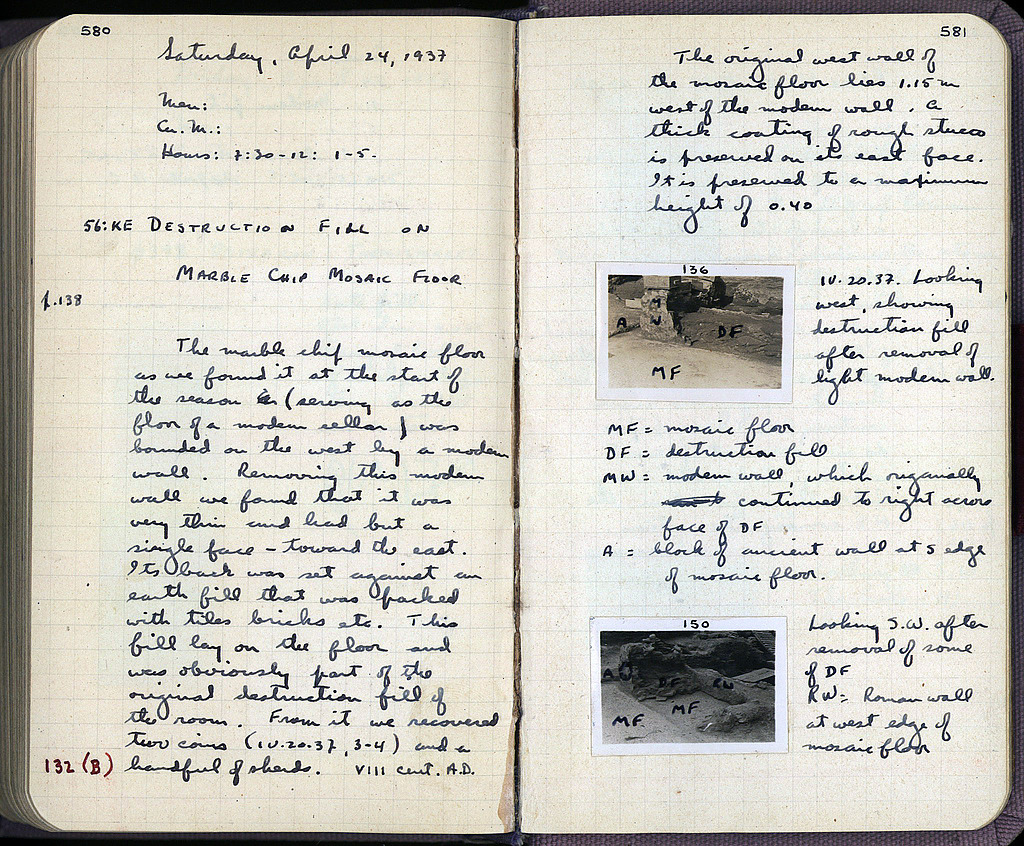 580
Saturday, April 24, 1937
Men:
Cu. M.:
Hours: 7:30-12: 1-5-
56:KE DESTRUCTION FILL ON
MARBLE CHIP MOSAIC FLOOR
p.138
The marble chip mosaic floor
as we found it at the start of
the season (serving as the
floor of a modern cellar) was
bounded on the west by a modern
wall. Removing this modern
wall we found that it was
very thin and had but a
single face - toward the east.
Its back was set against an
earth fill that was packed
with tiles bricks etc. This
fill lay on the floor and
was obviously part of the
original destruction fill of
the room. From it we recovered
two coins (IV.20.37, 3-4) and a
132 (B) handful of sherds. VIII cent. A.D.
581
The original west wall of
the mosaic floor lies 1.15 m
west of the modern wall. A
thick coating of rough stucco
is preserved on its east face.
It is preserved to a maximum
height of 0.40
136
A
MW
DF
MF
IV.20.37. Looking
west, showing
destruction fill
after removal of
light modern wall.
MF = mosaic floor
DF = destruction fill
MW = modern wall, which origanally
continued to right across
face of DF
A = block of ancient wall at S edge
of mosaic floor.
150
A
DF
RW
MF
MF
Looking S.W. after
removal of some
of DF
RW = Roman wall
at west edge of
mosaic floor